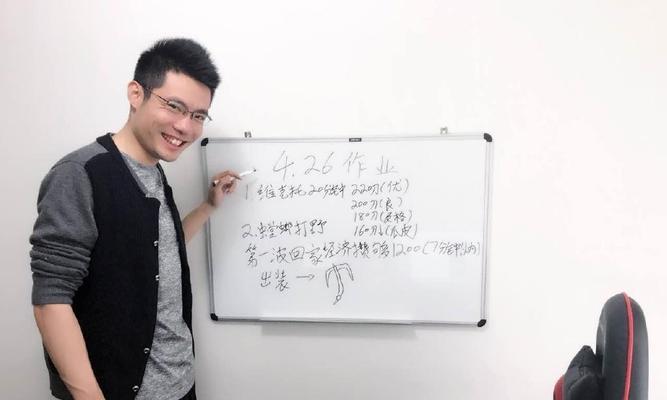 4.26 作业
1.维克托 20分钟 220刀(优)
200刀(良)
180刀(及格)
2.螳螂打野 160刀(瓜皮)
第一波回家经济攒够1200(7分钟内)
出装 →